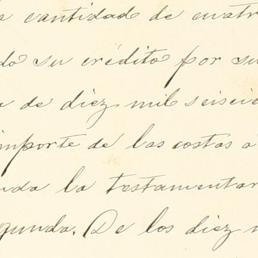 a cantidad de cuatr
do su crédito por su
a de diez mil seiscie
importe de las costas á
nda la testamentar
gunda. De los diez m